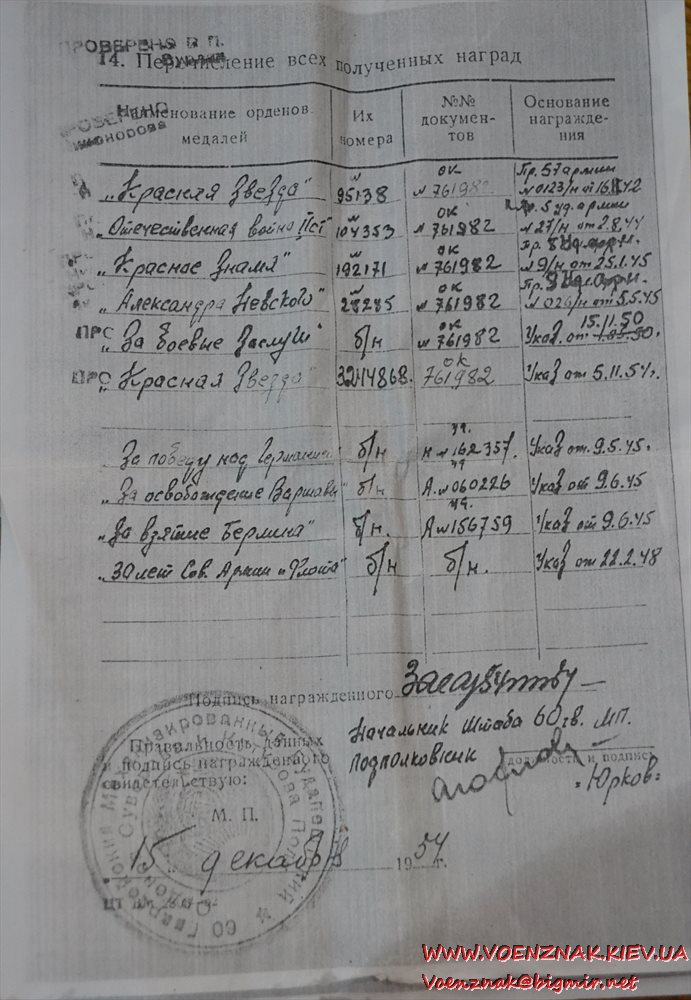 ПРОВЕРЕНО В П.
14. Перечисление всех полученных наград
Наименование орденов, медалей
Их номера
№№ документов
Основание награждения
„Красная Звезда" № 95138 ОК № 761982 Пр. 57 армии № 0123/н от
„Отечественная война IIст" № 104353 ОК № 761982 Пр. 5 уд. армии № 27/н от 2.8.44
„Красное Знамя" № 192171 ОК № 761982 № 9/н от 25.1.45
„Александра Невского" № 28285 ОК № 761982 № 026/н от 5.5.45
ПРО „За боевые заслуги" б/н ОК № 761982 Указ от 15.11.50
ПРО „Красная Звезда" 3244868. ОК 761982 Указ от 5.11.54г.
За победу над Германией б/н Н № 162357. Указ от 9.5.45.
„За освобождение Варшавы" б/н А.№ 060226 Указ от 9.6.45
„За взятие Берлина" б/н. А № 156759 Указ от 9.6.45
„30 лет Сов. Армии и Флота" б/н б/н. Указ от 22.2.48
Подпись награжденного
Начальник Штаба 60 гв. МП.
Подполковник
(должность и подпись
„Юрков"
Правильность данных
и подпись награжденного
свидетельствую:
М. П.
„15" декабря 1954 г.
WWW.VOENZNAK.KIEV.UA
Voenznak@bigmir.net